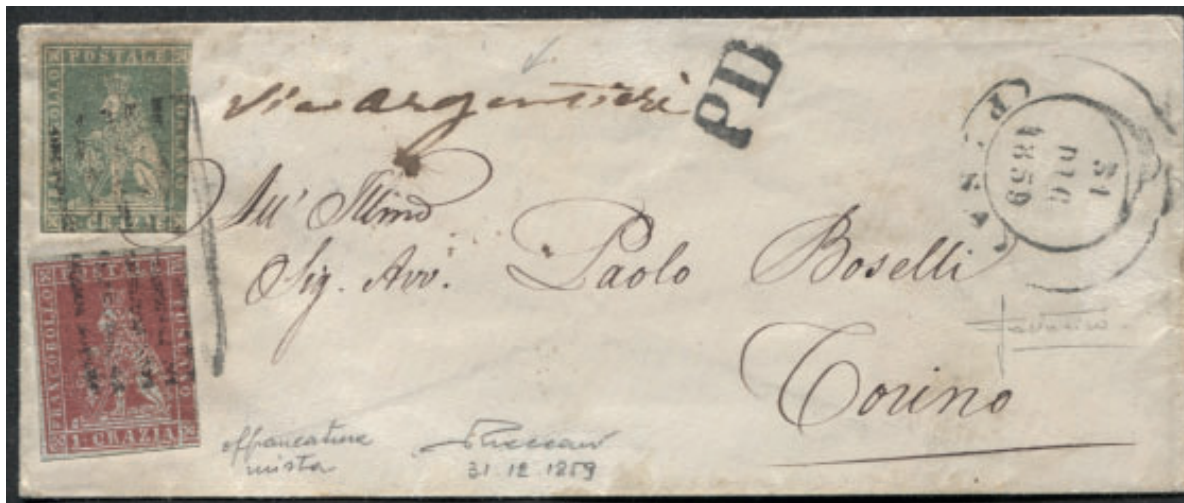 POSTALE
FRANCOBOLLO
TOSCANO
CRAZIE
POSTALE
FRANCOBOLLO
TOSCANO
1 CRAZIA
Via Argentieri
PD
31
DIC
1859
All' Illmo
Sig. Avv. Paolo Boselli
Torino
affrancatura
mista
31.12.1859